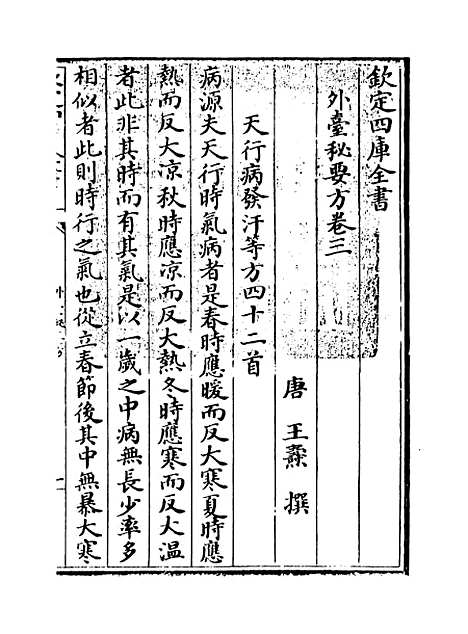 欽定四庫全書
外臺秘要方卷三
唐 王燾 撰
天行病發汗等方四十二首
病源夫天行時氣病者是春時應暖而反大寒夏時應
熱而反大涼秋時應涼而反大熱冬時應寒而反大溫
者此非其時而有其氣是以一歲之中病無長少率多
相似者此則時行之氣也從立春節後其中無暴大寒